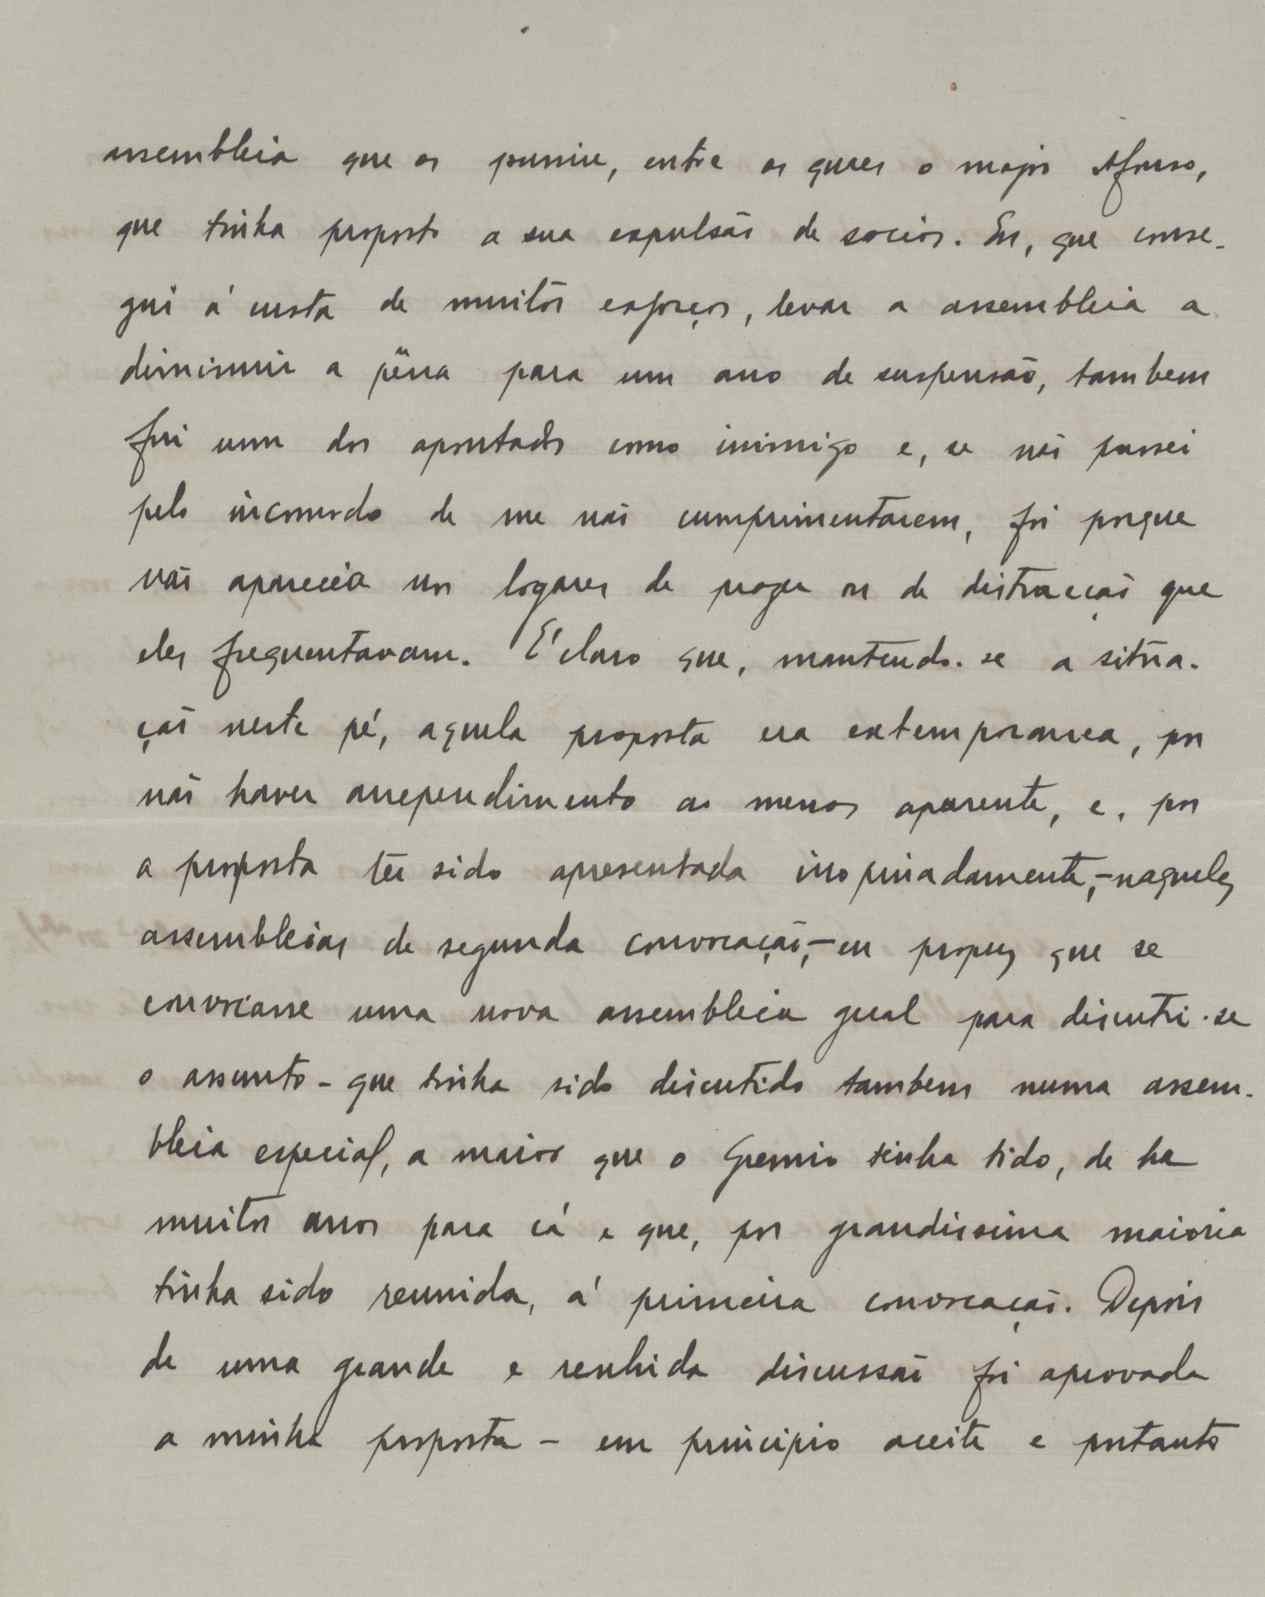 assembleia que os puniu, entre os quaes o major Afonso,
que tinha proposto a sua expulsão de socios. Eu, que conse-
gui á custa de muitos esforços, levar a assembleia a
diminuir a pena para um ano de suspensão, tambem
fui um dos apontados como inimigo e, se não passei
pelo incomodo de me não cumprimentarem, foi porque
não aparecia nos logares de prazer ou de distracção que
eles frequentavam. É claro que, mantendo-se a situa-
ção neste pé, aquela proposta era extemporanea, por
não haver arrependimento ao menos aparente, e, por
a proposta ter sido apresentada inopinadamente, - naquelas
assembleias de segunda convocação, - eu propuz que se
convocasse uma nova assembleia geral para discutir-se
o assunto - que tinha sido discutido tambem numa assem-
bleia especial, a maior que o Gremio tinha tido, de ha
muitos anos para cá e que, por grandissima maioria
tinha sido reunida, á primeira convocação. Depois
de uma grande e renhida discussão foi aprovada
a minha proposta - em principio aceite e portanto